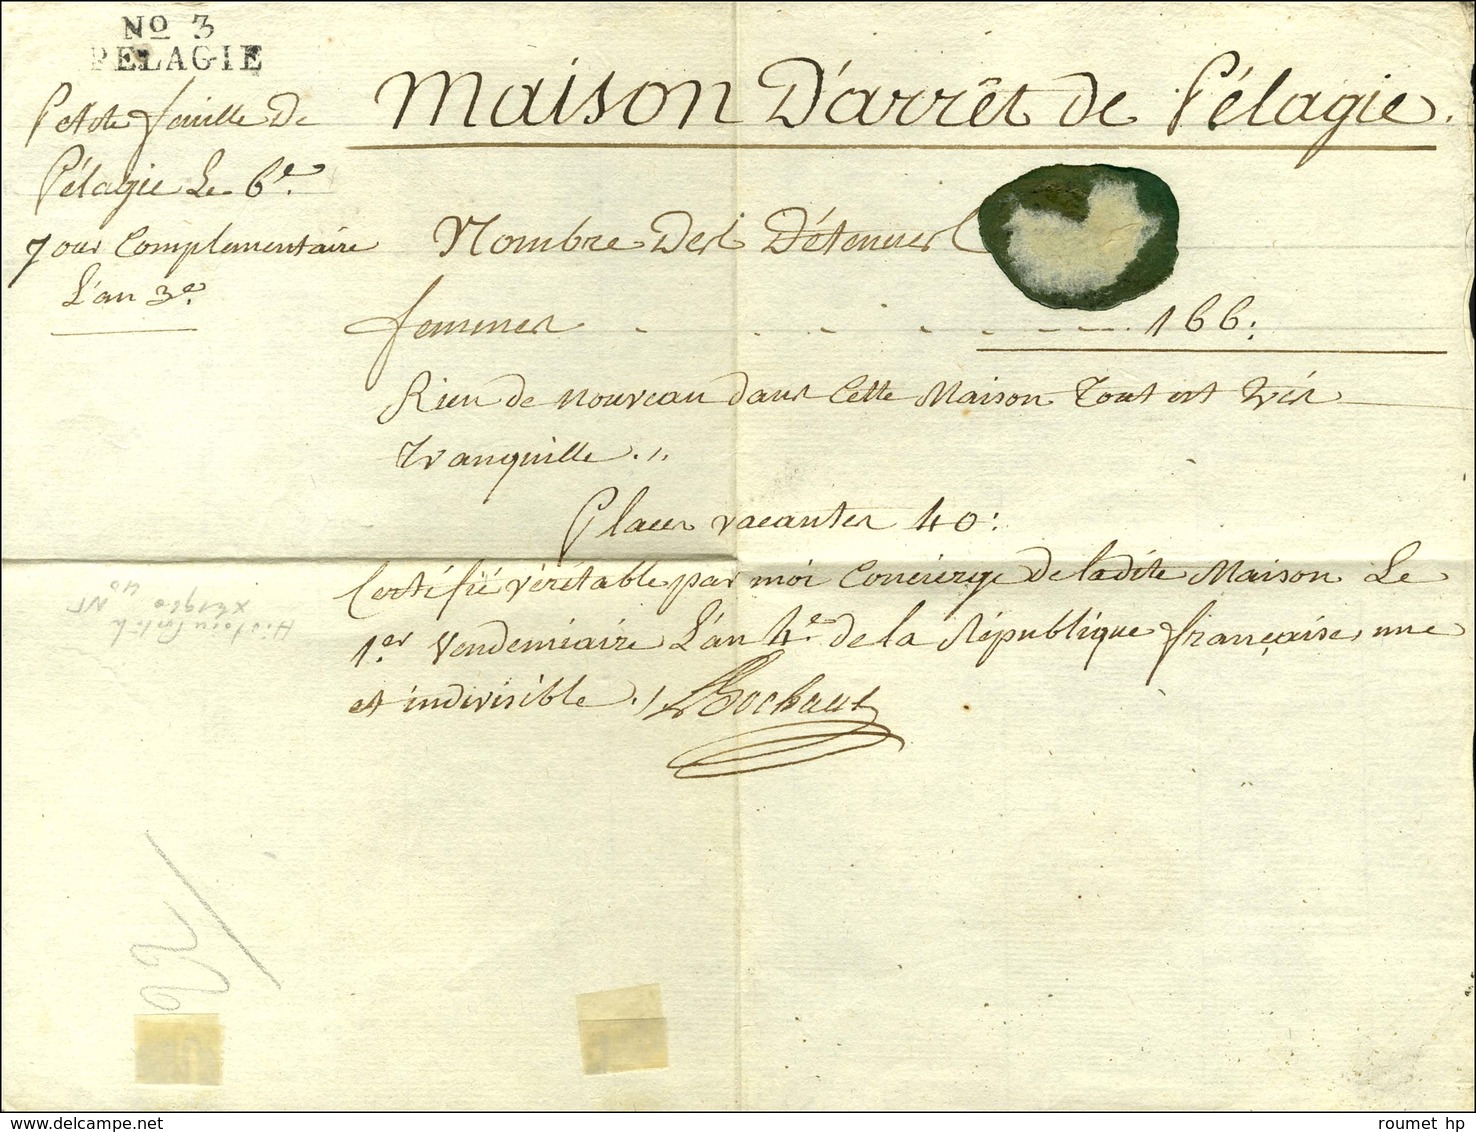 No 3
PELAGIE
Petite feuille De
Pélagie Le 6e.
Jour Complementaire
L'an 3e.
Maison D'arrêt de Pélagie.
Nombre Des Détenues
femmes - - - - - - - - 166.
Rien de nouveau dans Cette Maison Tout est très
tranquille.
Places vacantes 40.
Certifié véritable par moi Concierge de ladite Maison Le
1er Vendemiaire L'an 4e. de la République française, une
et indivisible.
40
roumet hp
www.delcampe.net